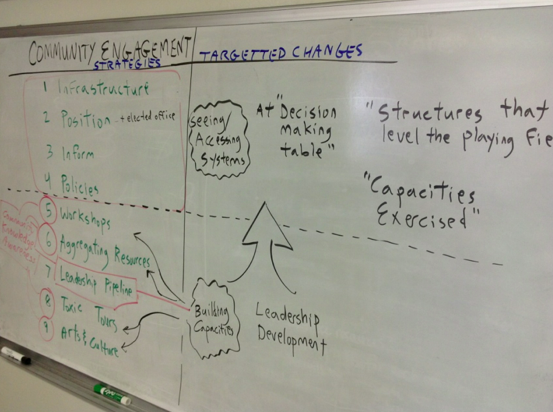 COMMUNITY ENGAGEMENT
STRATEGIES
TARGETTED CHANGES
1 Infrastructure
2 Position + elected office
3 Inform
4 Policies
5 Workshops
6 Aggregating Resources
7 Leadership Pipeline
8 Toxic Tours
9 Arts & Culture
Community
Knowledge
Awareness
Seeing/
Accessing
Systems
At "Decision
making
table"
"Structures that
level the playing Fie
"Capacities
Exercised"
Building
Capacities
Leadership
Development